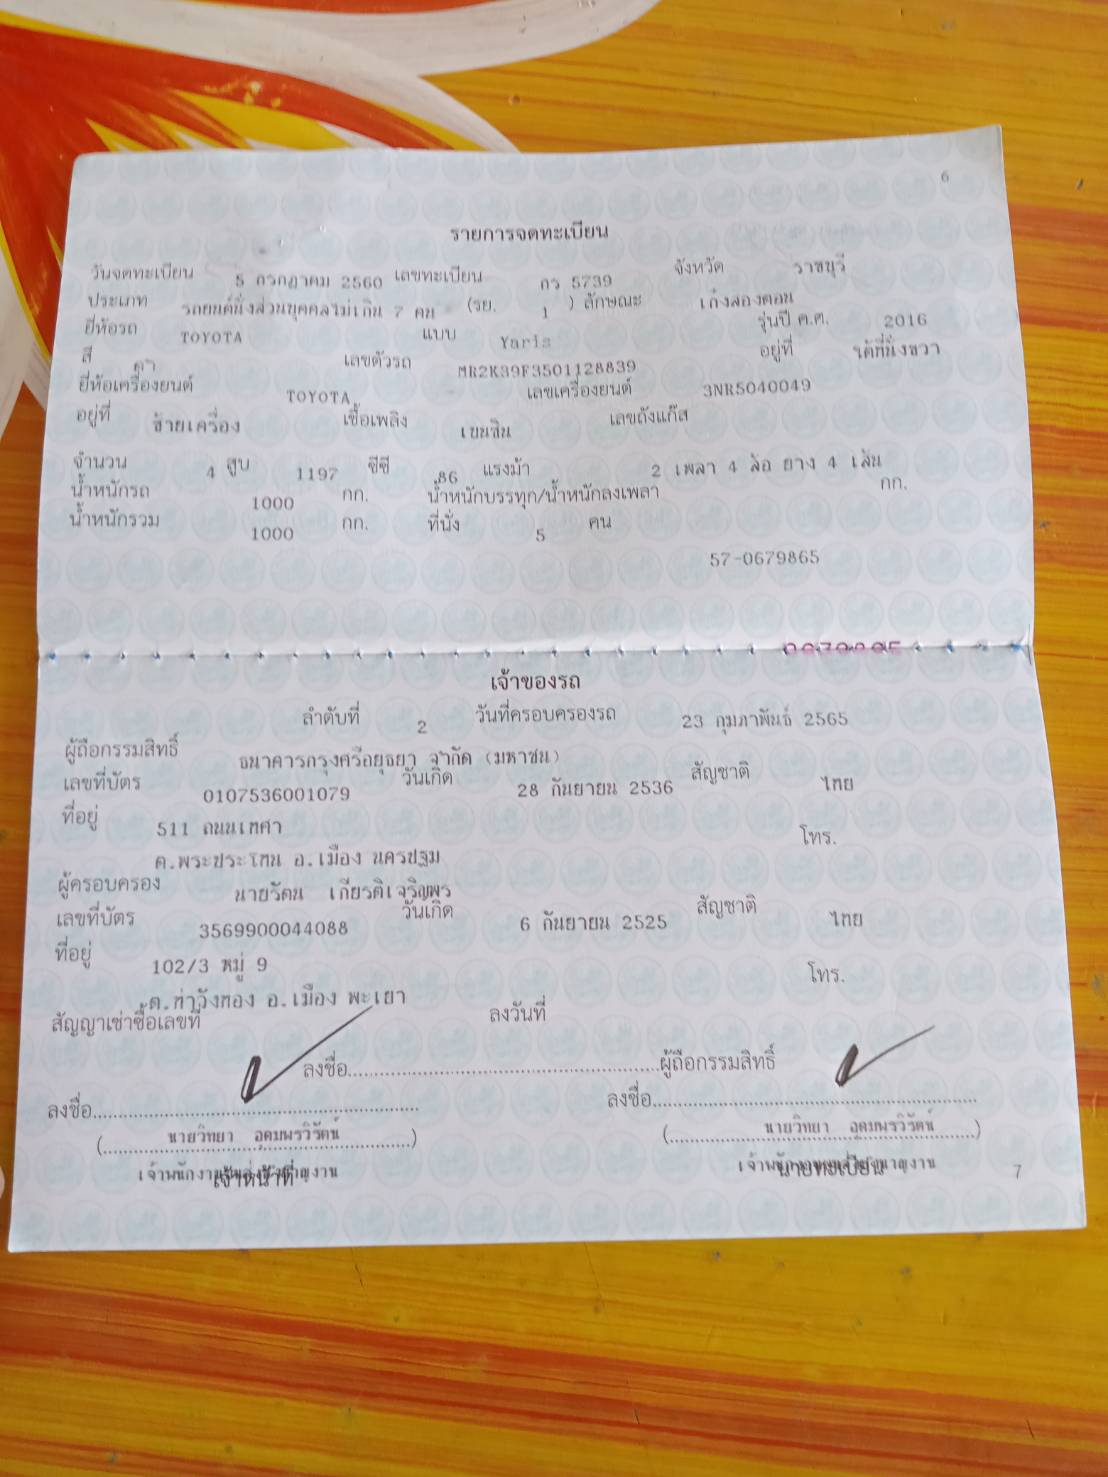 6
รายการจดทะเบียน
วันจดทะเบียน 5 กรกฎาคม 2560 เลขทะเบียน กว 5739 จังหวัด ราชบุรี
ประเภท รถยนต์นั่งส่วนบุคคลไม่เกิน 7 คน (รย. 1 ) ลักษณะ เก๋งสองตอน
ยี่ห้อรถ TOYOTA แบบ Yaris รุ่นปี ค.ศ. 2016
สี ดำ เลขตัวรถ MR2K39F3501128839 อยู่ที่ ใต้ที่นั่งขวา
ยี่ห้อเครื่องยนต์ TOYOTA เลขเครื่องยนต์ 3NR5040049
อยู่ที่ ซ้ายเครื่อง เชื้อเพลิง เบนซิน เลขถังแก๊ส
จำนวน 4 สูบ 1197 ซีซี 86 แรงม้า 2 เพลา 4 ล้อ ยาง 4 เส้น
น้ำหนักรถ 1000 กก. น้ำหนักบรรทุก/น้ำหนักลงเพลา กก.
น้ำหนักรวม 1000 กก. ที่นั่ง 5 คน
57-0679865
เจ้าของรถ
ลำดับที่ 2 วันที่ครอบครองรถ 23 กุมภาพันธ์ 2565
ผู้ถือกรรมสิทธิ์ ธนาคารกรุงศรีอยุธยา จำกัด (มหาชน)
เลขที่บัตร 0107536001079 วันเกิด 28 กันยายน 2536 สัญชาติ ไทย
ที่อยู่ 511 ถนนเทศา โทร.
ต.พระประโทน อ.เมือง นครปฐม
ผู้ครอบครอง นายรัตน เกียรติเจริญพร
เลขที่บัตร 3569900044088 วันเกิด 6 กันยายน 2525 สัญชาติ ไทย
ที่อยู่ 102/3 หมู่ 9 โทร.
ต.ท่าวังทอง อ.เมือง พะเยา
สัญญาเช่าซื้อเลขที่ ลงวันที่
ลงชื่อ ผู้ถือกรรมสิทธิ์
ลงชื่อ ลงชื่อ
(นายวิทยา อุดมพรวิรัตน์) (นายวิทยา อุดมพรวิรัตน์)
เจ้าหน้าที่ นายทะเบียน
7